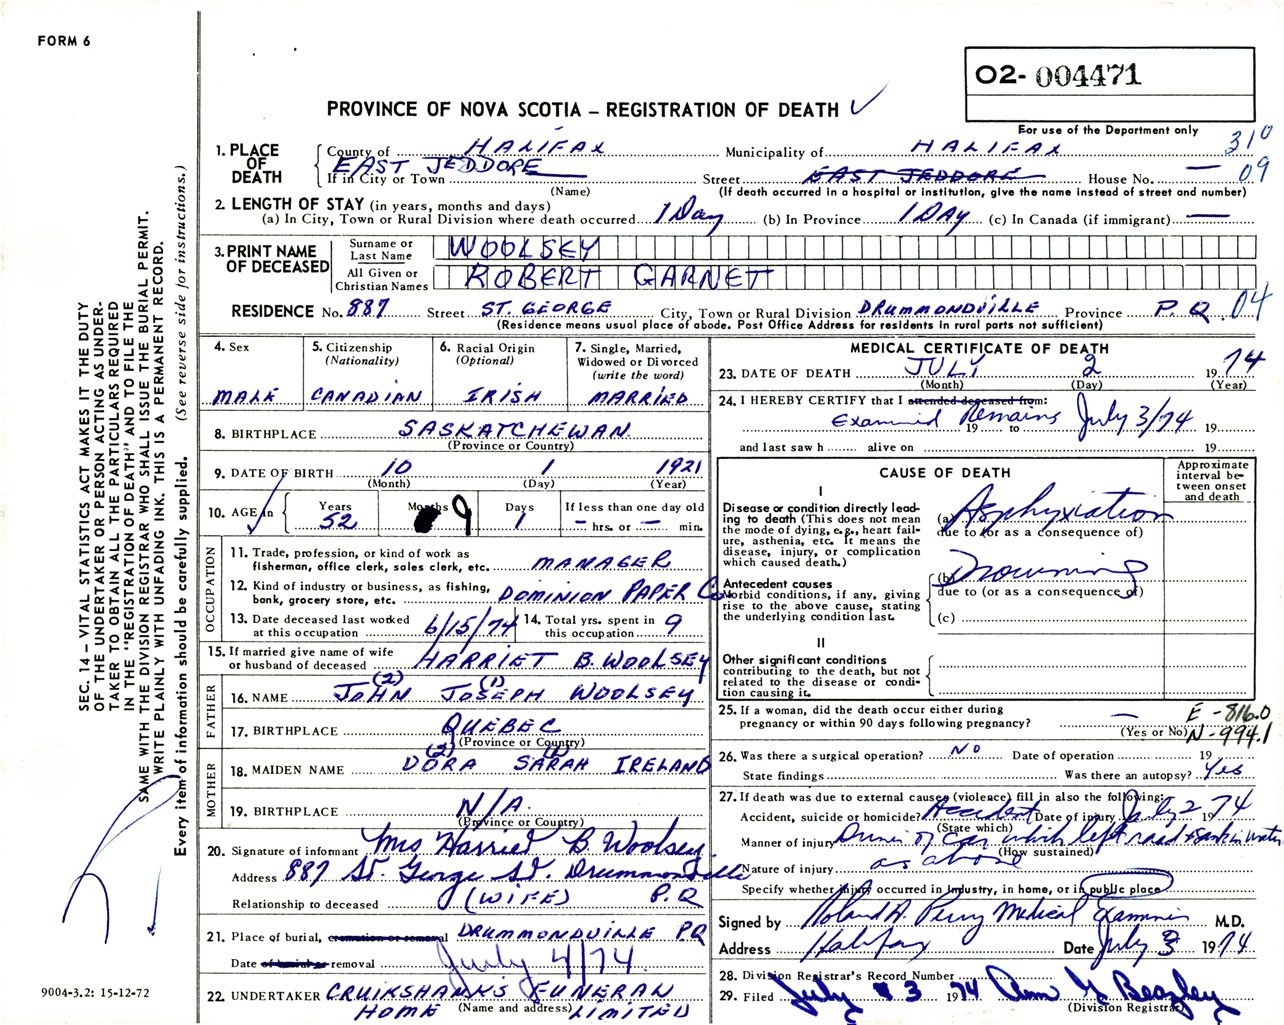 FORM 6
02-004471
PROVINCE OF NOVA SCOTIA – REGISTRATION OF DEATH
For use of the Department only
310
09
1. PLACE OF DEATH
County of HALIFAX Municipality of HALIFAX
EAST JEDDORE
If in City or Town Street EAST JEDDORE House No. —
(Name) (If death occurred in a hospital or institution, give the name instead of street and number)
2. LENGTH OF STAY (in years, months and days)
(a) In City, Town or Rural Division where death occurred 1 Day (b) In Province 1 DAY (c) In Canada (if immigrant) —
3. PRINT NAME OF DECEASED
Surname or Last Name WOOLSEY
All Given or Christian Names ROBERT GARNET
RESIDENCE No. 887 Street ST. GEORGE City, Town or Rural Division DRUMMONDVILLE Province P.Q. 04
(Residence means usual place of abode. Post Office Address for residents in rural parts not sufficient)
4. Sex MALE
5. Citizenship (Nationality) CANADIAN
6. Racial Origin (Optional) IRISH
7. Single, Married, Widowed or Divorced (write the word) MARRIED
8. BIRTHPLACE SASKATCHEWAN
(Province or Country)
9. DATE OF BIRTH 10 1 1921
(Month) (Day) (Year)
10. AGE in Years 52 Months 9 Days 1 If less than one day old — hrs. or — min.
OCCUPATION
11. Trade, profession, or kind of work as fisherman, office clerk, sales clerk, etc. MANAGER
12. Kind of industry or business, as fishing, bank, grocery store, etc. DOMINION PAPER Co
13. Date deceased last worked at this occupation 6/15/74
14. Total yrs. spent in this occupation 9
15. If married give name of wife or husband of deceased HARRIET B. WOOLSEY
FATHER
(2) (1)
16. NAME JOHN JOSEPH WOOLSEY
17. BIRTHPLACE QUEBEC
(Province or Country)
MOTHER
(2) (1)
18. MAIDEN NAME DORA SARAH IRELAND
19. BIRTHPLACE N/A.
(Province or Country)
20. Signature of informant Mrs Harriet B. Woolsey
Address 887 St. George St. Drummondville P.Q
Relationship to deceased (WIFE)
21. Place of burial, cremation or removal DRUMMONDVILLE P.Q
Date of burial or removal July 4/74.
22. UNDERTAKER CRUIKSHANKS FUNERAL HOME LIMITED
(Name and address)
MEDICAL CERTIFICATE OF DEATH
23. DATE OF DEATH JULY 2 1974
(Month) (Day) (Year)
24. I HEREBY CERTIFY that I attended deceased from:
Examined Remains July 3/74
19 to 19
and last saw h alive on 19
CAUSE OF DEATH
Approximate interval between onset and death
I
Disease or condition directly leading to death (This does not mean the mode of dying, e.g., heart failure, asthenia, etc. It means the disease, injury, or complication which caused death.)
(a) Asphyxiation
due to (or as a consequence of)
Antecedent causes
Morbid conditions, if any, giving rise to the above cause, stating the underlying condition last.
(b) Drowning
due to (or as a consequence of)
(c)
II
Other significant conditions contributing to the death, but not related to the disease or condition causing it.
25. If a woman, did the death occur either during pregnancy or within 90 days following pregnancy? —
(Yes or No)
E-816.0
N-994.1
26. Was there a surgical operation? NO Date of operation 19
State findings Was there an autopsy? Yes
27. If death was due to external causes (violence) fill in also the following:
Accident, suicide or homicide? Accident Date of injury July 2 1974
(State which)
Manner of injury Driver of car which left road & sank in water
(How sustained)
Nature of injury as above
Specify whether injury occurred in industry, in home, or in public place
Signed by Roland A. Perry Medical Examiner M.D.
Address Halifax Date July 3 1974
28. Division Registrar's Record Number
29. Filed July 3 1974 Ann G Beazley
(Division Registrar)
SEC. 14 – VITAL STATISTICS ACT MAKES IT THE DUTY
OF THE UNDERTAKER OR PERSON ACTING AS UNDER-
TAKER TO OBTAIN ALL THE PARTICULARS REQUIRED
IN THE "REGISTRATION OF DEATH" AND TO FILE THE
SAME WITH THE DIVISION REGISTRAR WHO SHALL ISSUE THE BURIAL PERMIT.
WRITE PLAINLY WITH UNFADING INK. THIS IS A PERMANENT RECORD.
Every item of information should be carefully supplied. (See reverse side for instructions.)
9004-3.2: 15-12-72